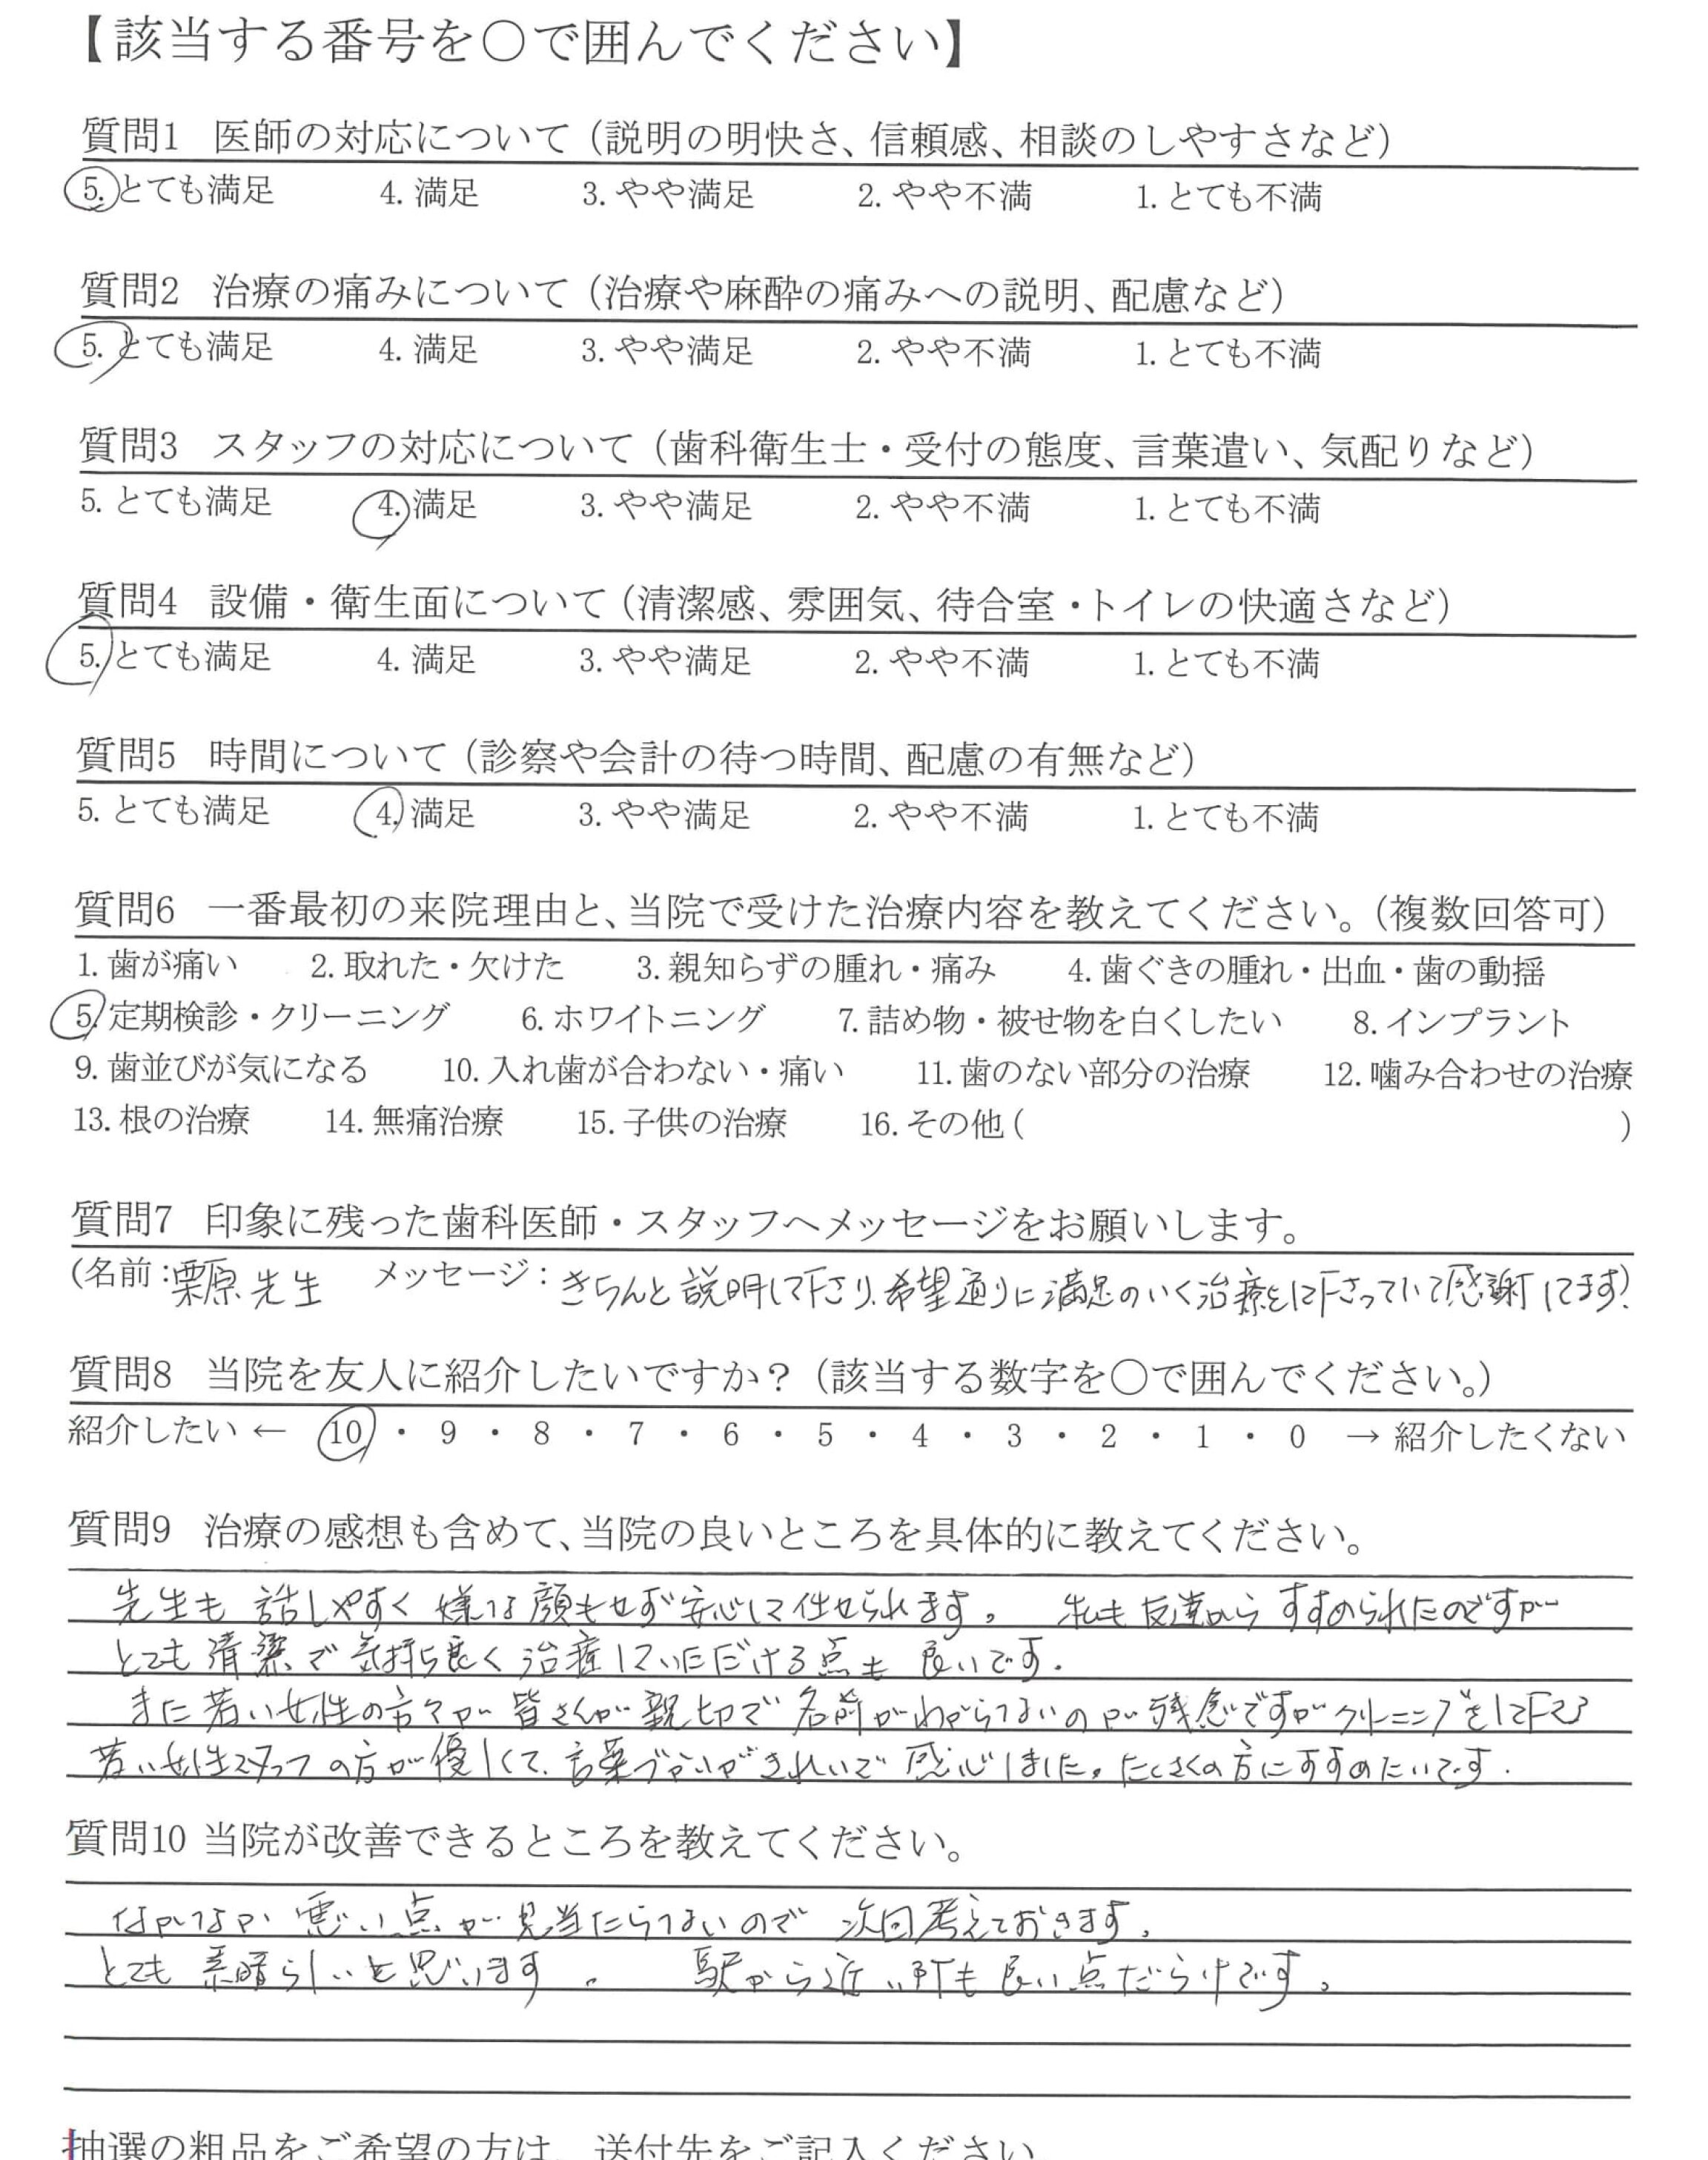 【該当する番号を〇で囲んでください】
質問1 医師の対応について（説明の明快さ、信頼感、相談のしやすさなど）
5. とても満足 4. 満足 3. やや満足 2. やや不満 1. とても不満
質問2 治療の痛みについて（治療や麻酔の痛みへの説明、配慮など）
5. とても満足 4. 満足 3. やや満足 2. やや不満 1. とても不満
質問3 スタッフの対応について（歯科衛生士・受付の態度、言葉遣い、気配りなど）
5. とても満足 4. 満足 3. やや満足 2. やや不満 1. とても不満
質問4 設備・衛生面について（清潔感、雰囲気、待合室・トイレの快適さなど）
5. とても満足 4. 満足 3. やや満足 2. やや不満 1. とても不満
質問5 時間について（診察や会計の待つ時間、配慮の有無など）
5. とても満足 4. 満足 3. やや満足 2. やや不満 1. とても不満
質問6 一番最初の来院理由と、当院で受けた治療内容を教えてください。（複数回答可）
1. 歯が痛い 2. 取れた・欠けた 3. 親知らずの腫れ・痛み 4. 歯ぐきの腫れ・出血・歯の動揺
5. 定期検診・クリーニング 6. ホワイトニング 7. 詰め物・被せ物を白くしたい 8. インプラント
9. 歯並びが気になる 10. 入れ歯が合わない・痛い 11. 歯のない部分の治療 12. 噛み合わせの治療
13. 根の治療 14. 無痛治療 15. 子供の治療 16. その他 ( )
質問7 印象に残った歯科医師・スタッフへメッセージをお願いします。
(名前：栗原先生 メッセージ：きちんと説明して下さり、希望通りに満足のいく治療をして下さっていて感謝してます!)
質問8 当院を友人に紹介したいですか？（該当する数字を〇で囲んでください。）
紹介したい ← 10 ・ 9 ・ 8 ・ 7 ・ 6 ・ 5 ・ 4 ・ 3 ・ 2 ・ 1 ・ 0 → 紹介したくない
質問9 治療の感想も含めて、当院の良いところを具体的に教えてください。
先生も 話しやすく 嫌な顔もせず安心して任せられます。 私も友達から すすめられたのですが
とても清潔で気持ち良く治療していただける点も 良いです.
また若い女性の方々が 皆さんが親切で 名前がわからないのが残念ですがクリーニングをして下さる
若い女性スタッフの方が優しくて、言葉づかいがきれいで 感心しました。たくさんの方にすすめたいです.
質問10 当院が改善できるところを教えてください。
なかなか 悪い点が見当たらないので 次回考えておきます。
とても 素晴らしいと思います。 駅から近い所も良い点だらけです。
抽選の粗品をご希望の方は、送付先をご記入ください。